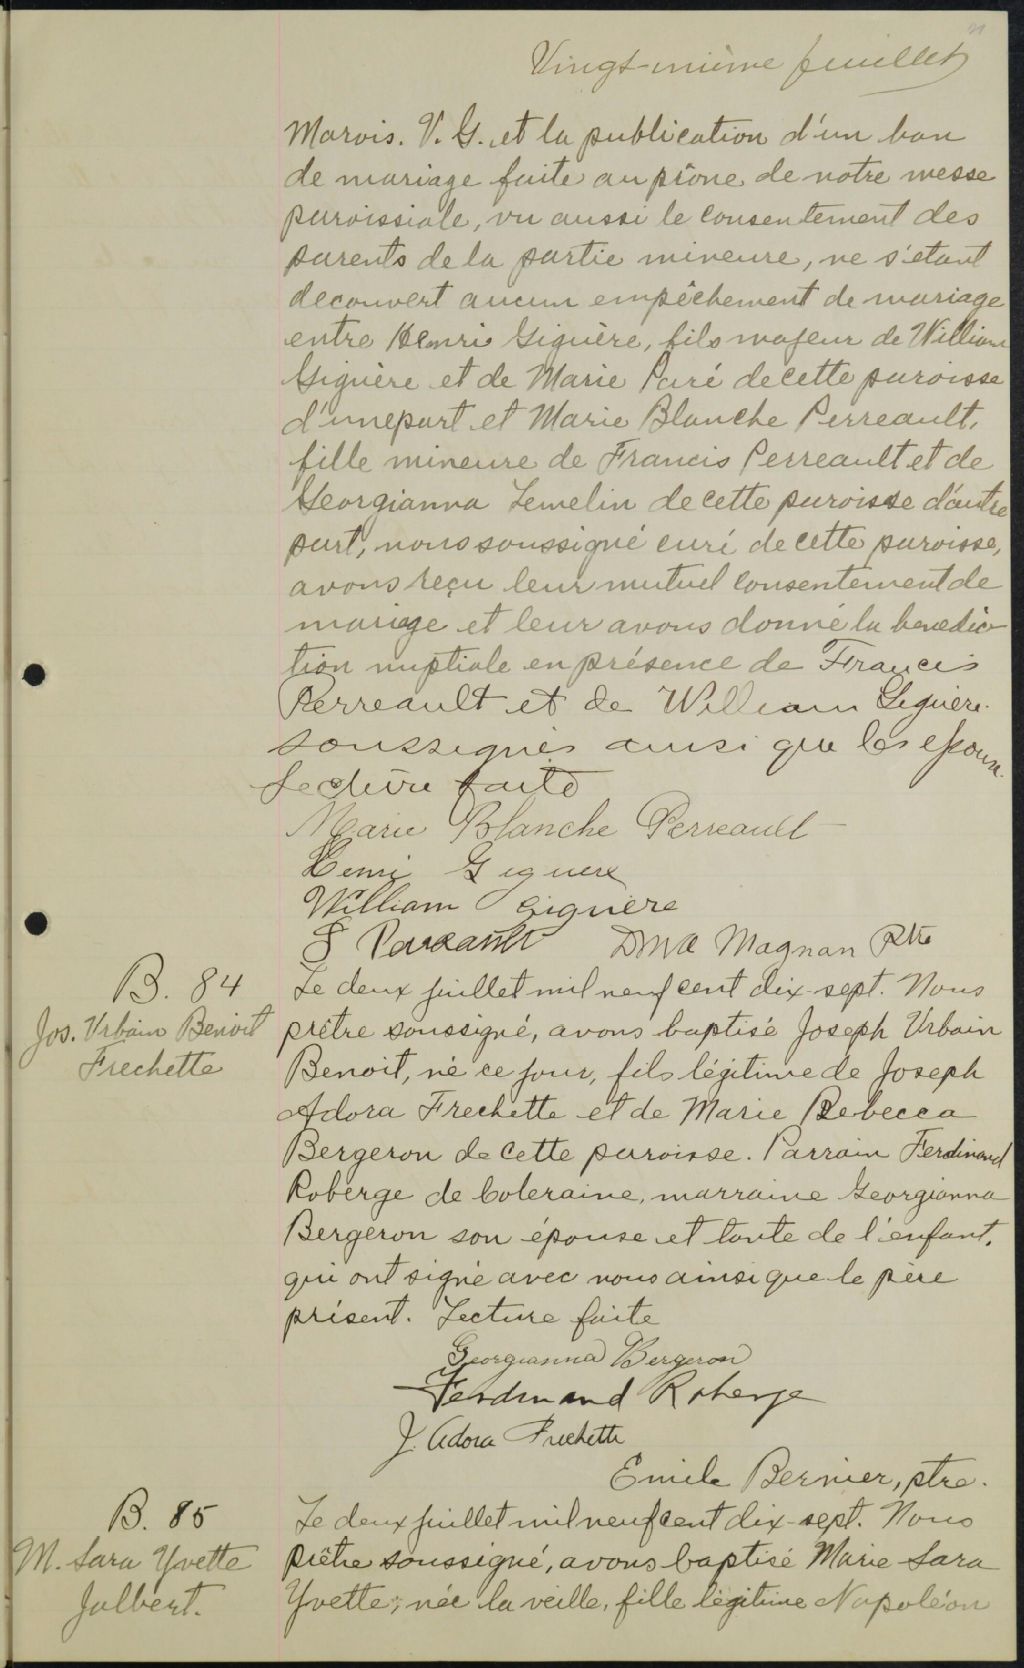 21
Vingt-unième feuillet
Marois. V. G. et la publication d'un ban
de mariage faite au prône de notre messe
paroissiale, vu aussi le consentement des
parents de la partie mineure, ne s'étant
decouvert aucun empêchement de mariage
entre Henri Giguère, fils majeur de William
Giguère et de Marie Paré de cette paroisse
d'une part et Marie Blanche Perreault,
fille mineure de Francis Perreault et de
Georgianna Lemelin de cette paroisse d'autre
part, nous soussigné curé de cette paroisse,
avons reçu leur mutuel consentement de
mariage et leur avons donné la benedic-
tion nuptiale en présence de Francis
Perreault et de William Giguère.
soussignés ainsi que les epoux.
Lecture faite
Marie Blanche Perreault
Henri Giguere
William Giguère
F Perreault Ptre
Magnan
B. 84
Jos. Urbain Benoit
Frechette
Le deux juillet mil neuf cent dix-sept. Nous
prêtre soussigné, avons baptisé Joseph Urbain
Benoit, né ce jour, fils légitime de Joseph
Adora Frechette et de Marie Rebecca
Bergeron de cette paroisse. Parrain Ferdinand
Roberge de Coleraine, marraine Georgianna
Bergeron son épouse et tante de l'enfant,
qui ont signé avec nous ainsi que le père
présent. Lecture faite
Georgianna Bergeron
Ferdinand Roberge
J. Adora Frechette
Emile Bernier, ptre.
B. 85
M. Sara Yvette
Jalbert.
Le deux juillet mil neuf cent dix-sept. Nous
prêtre soussigné, avons baptisé Marie Sara
Yvette, née la veille, fille légitime Napoléon